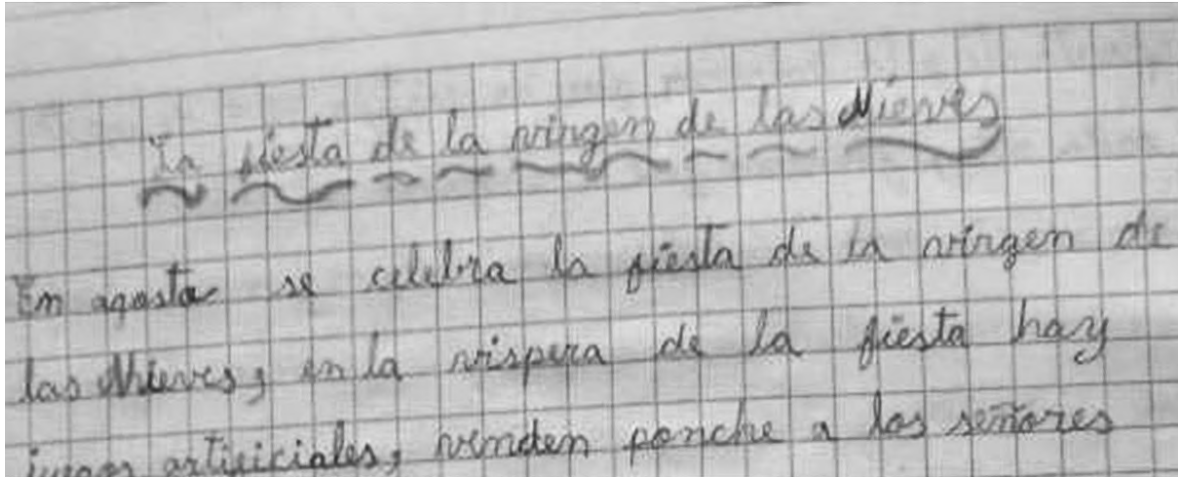 La fiesta de la virgen de las Nieves
En agosto se celebra la fiesta de la virgen de
las Nieves, en la vispera de la fiesta hay
juegos artificiales, venden ponche a los señores